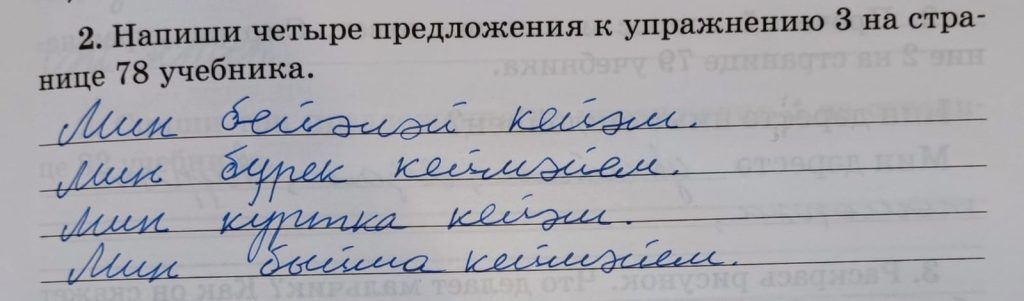 2. Напиши четыре предложения к упражнению 3 на стра-
нице 78 учебника.
Мин бейәләй кейәм.
Мин бүрек кеймәйем.
Мин куртка кейәм.
Мин быйма кеймәйем.